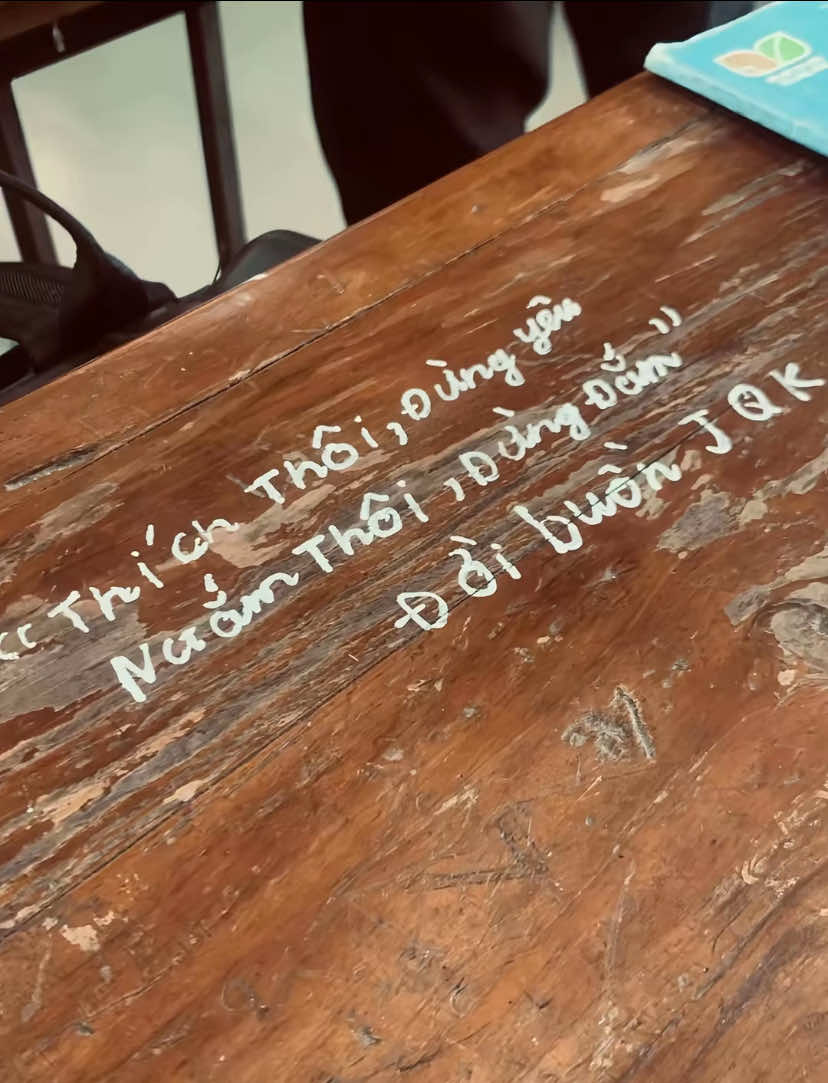 “Thích Thôi, Đừng yêu
Ngắm Thôi, Đừng Đắm”
Đời buồn JQK